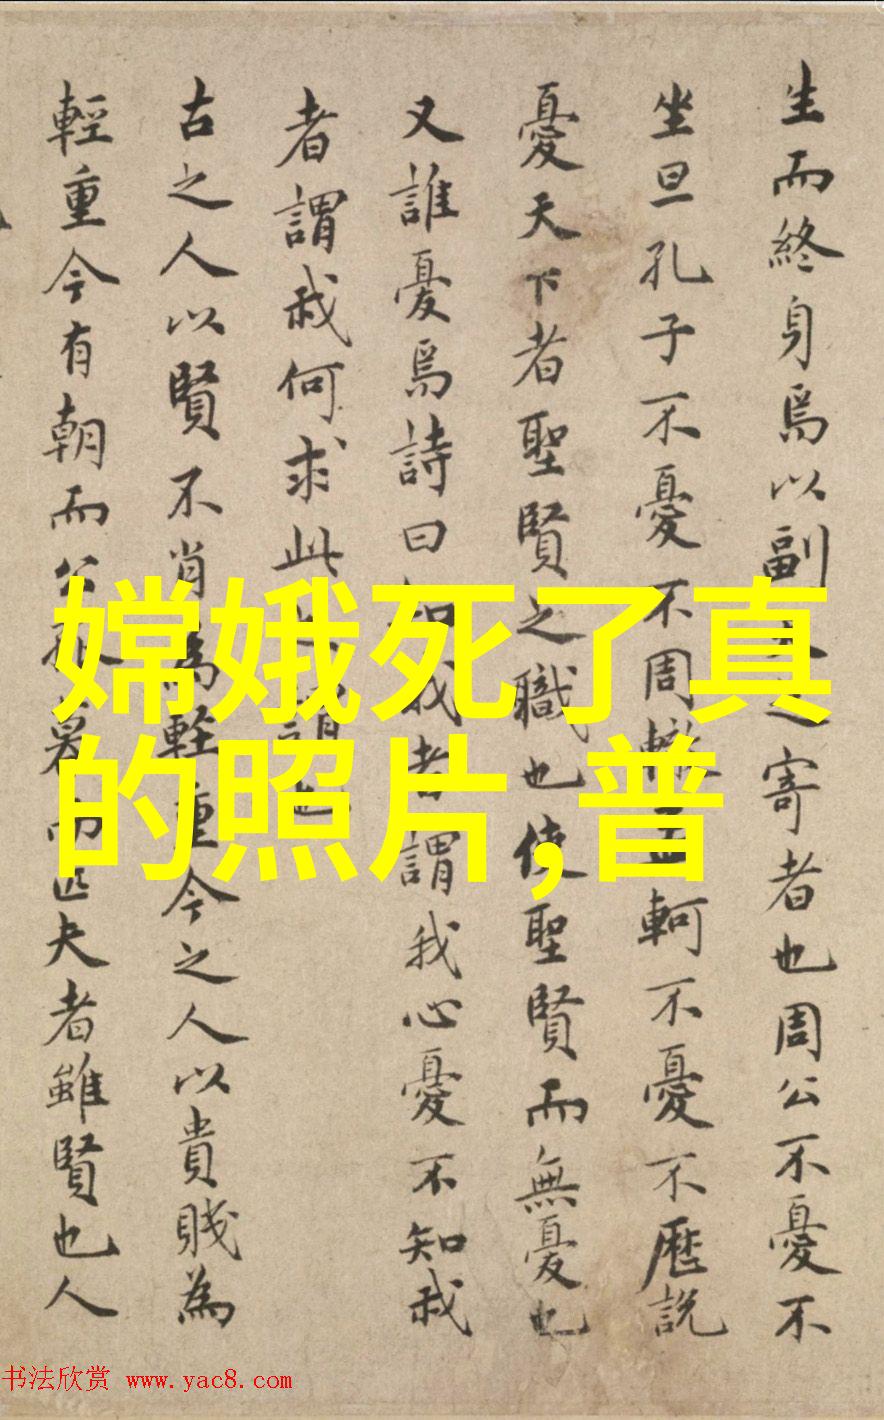 生而終身焉以副之寄者也周公不憂不
坐旦孔子不憂不周轍孟軻不憂不歷說
憂天下者聖賢之職也使聖賢而無憂也
又誰憂焉詩曰知我者謂我心憂不知我
者謂我何求此之謂也
古之人以賢不肖為輕重今之人以貴賤為
輕重今有朝而公孤暮而匹夫者雖賢也人
嫦娥死了真
的照片,普
书法欣赏 www.yac8.com